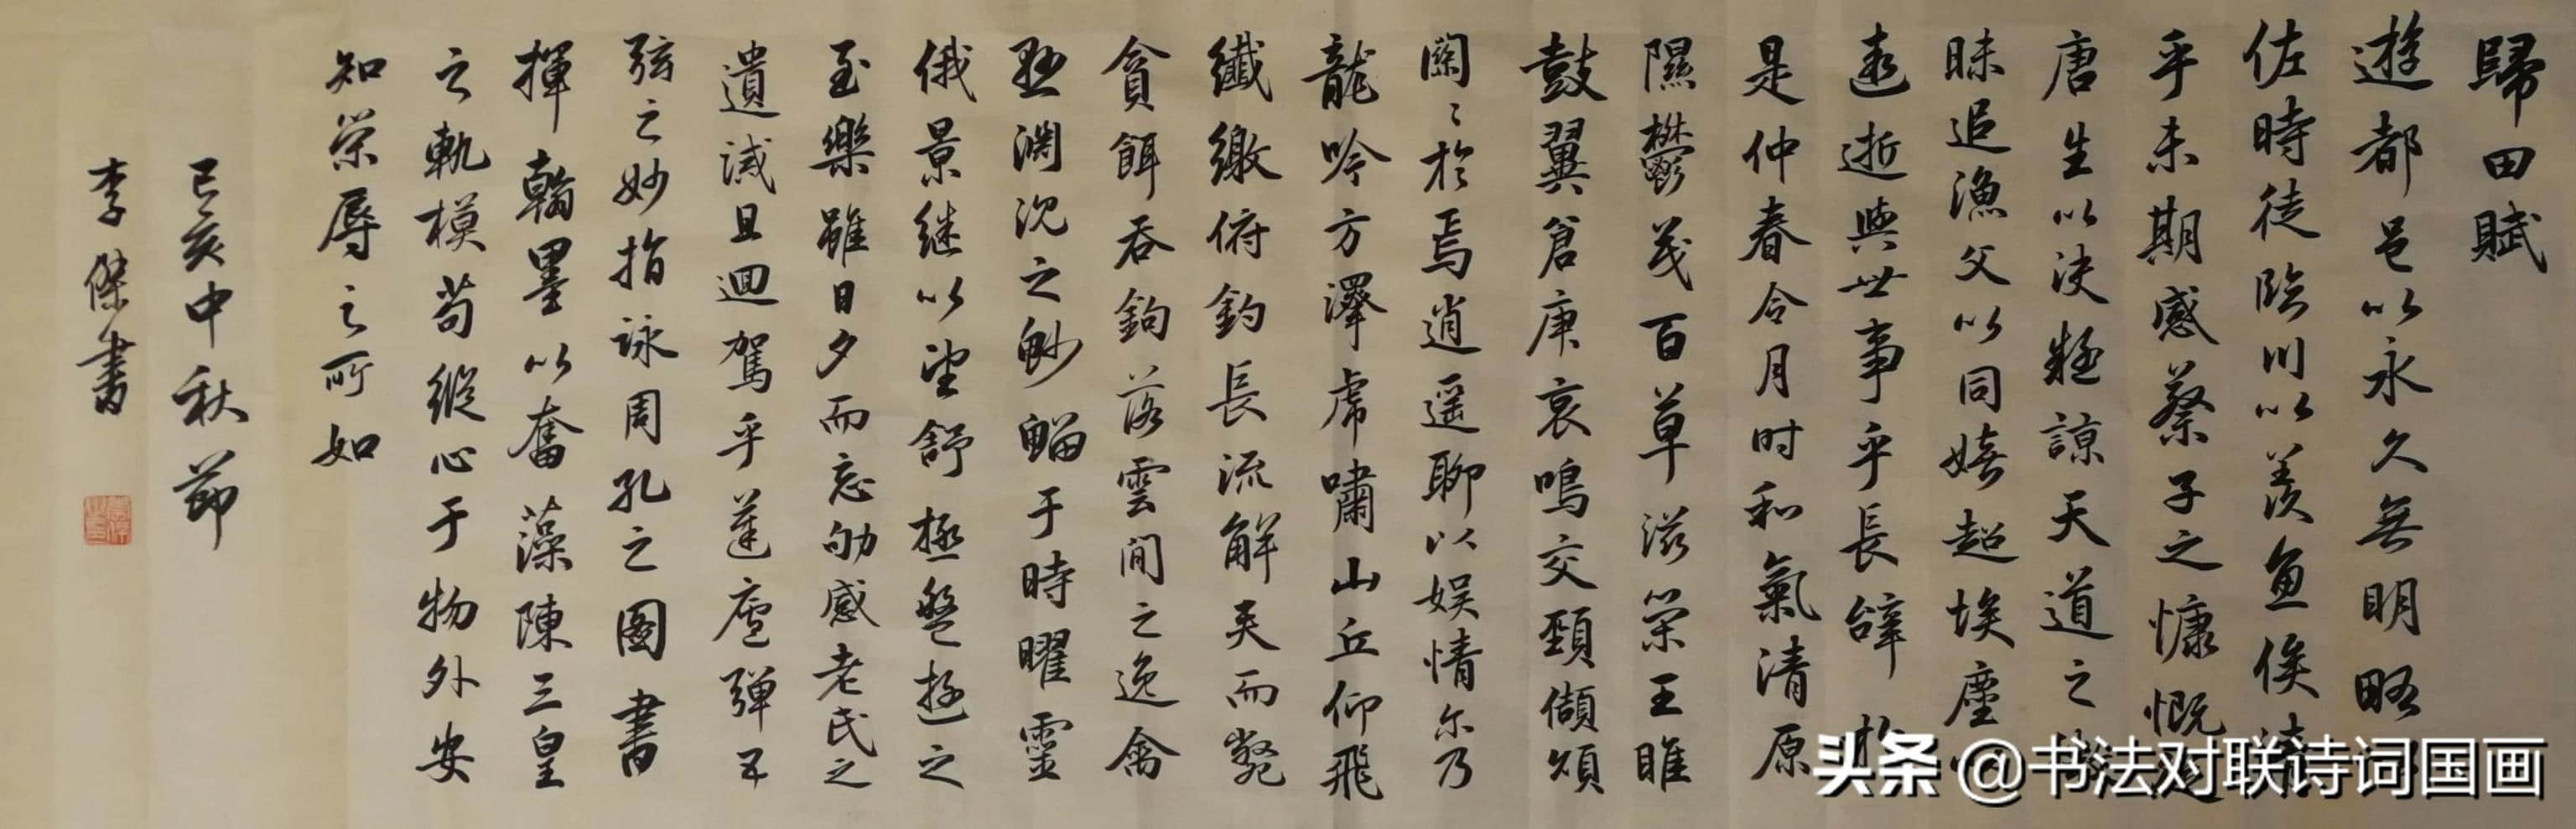 歸田賦
遊都邑以永久無明略
佐時徒臨川以羨魚俟清
乎未期感蔡子之慷慨
唐生以決疑諒天道之
昧追漁父以同嬉超埃塵
遠逝與世事乎長辭於
是仲春令月时和氣清原
隰鬱茂百草滋榮王雎
鼓翼倉庚哀鳴交頸頡頏
關〻於焉逍遥聊以娱情尔乃
龍吟方澤虎嘯山丘仰飛
纖繳俯釣長流觸矢而斃
貪餌吞鉤落雲間之逸禽
懸淵沉之魦鰡于時曜靈
俄景继以望舒極盤遊之
至樂雖日夕而忘劬感老氏之
遺誡且迴駕乎蓬廬弹五
弦之妙指詠周孔之圖書
揮翰墨以奮藻陳三皇
之軌模苟縱心于物外安
知荣辱之所如
己亥中秋節
李傑書
头条 @书法对联诗词国画